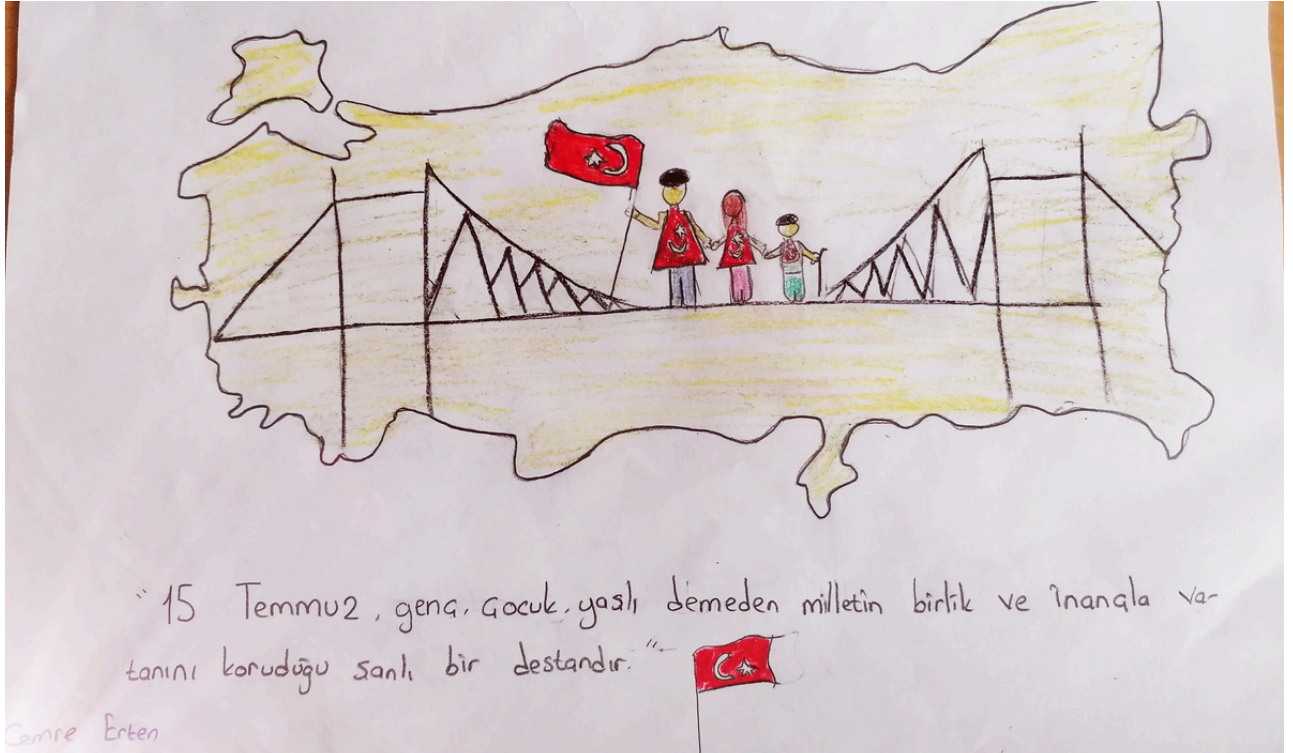 "15 Temmuz, genç, çocuk, yaşlı demeden milletin birlik ve inançla va-
tanını koruduğu şanlı bir destandır."
Cemre Erten